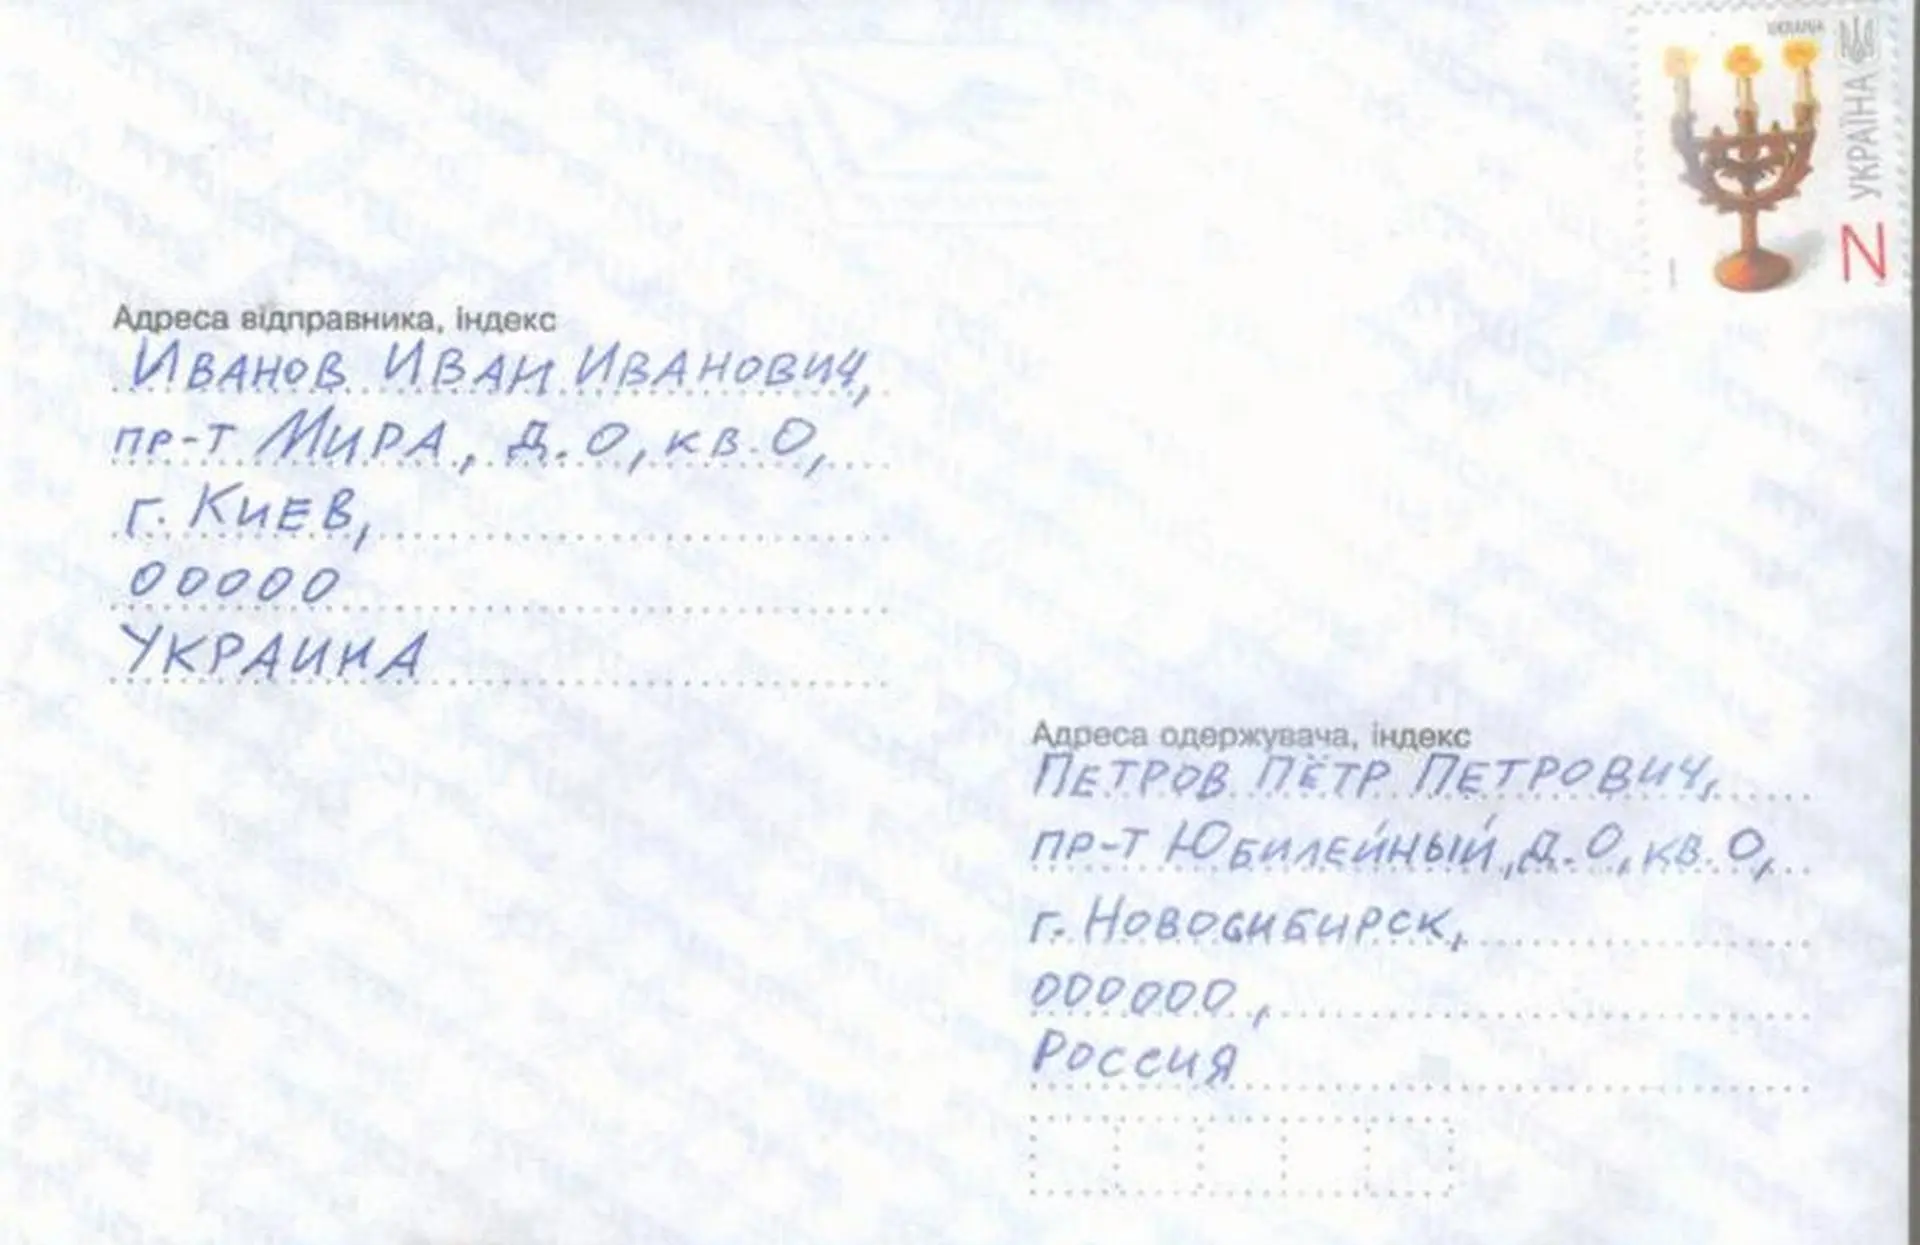 УКРАЇНА
N
Адреса відправника, індекс
Иванов Иван Иванович,
пр-т Мира, д.0, кв.0,
г. Киев,
00000
Украина
Адреса одержувача, індекс
Петров Пётр Петрович,
пр-т Юбилейный, д.0, кв.0,
г. Новосибирск,
000000,
Россия